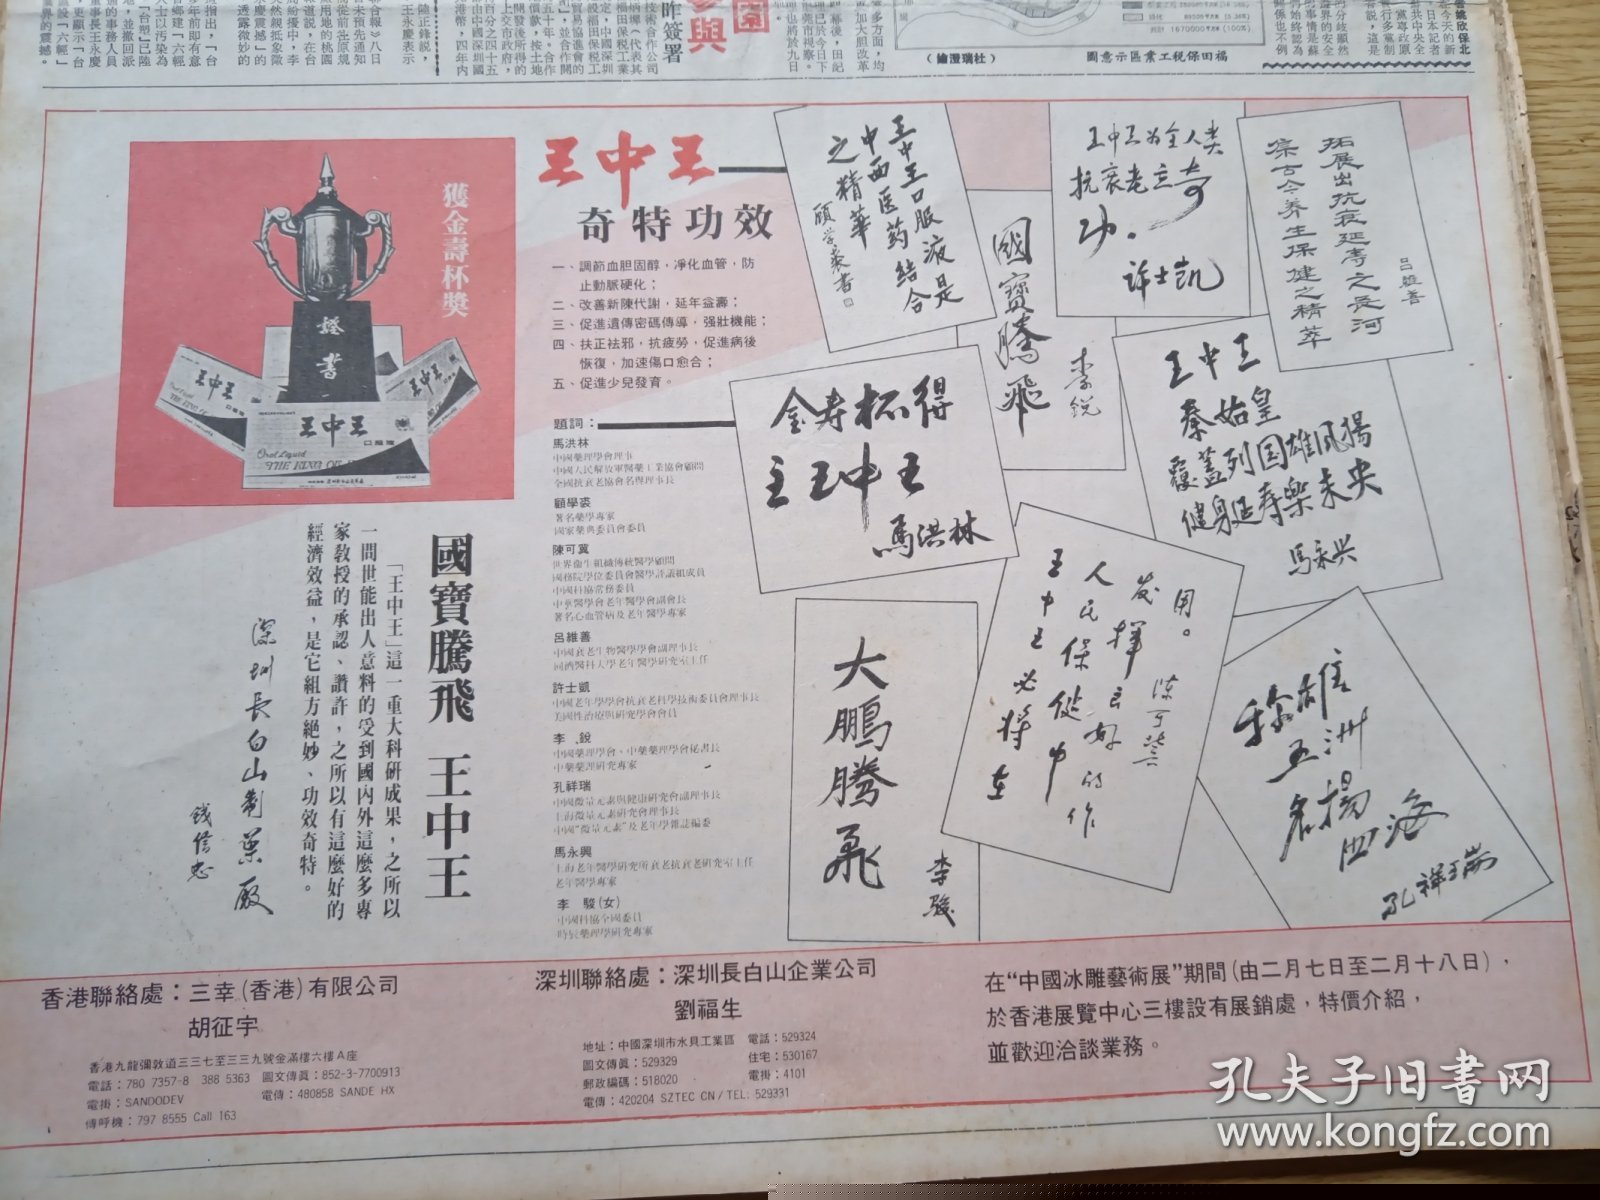 福田保稅工業區示意圖
（杜瑞澄繪）
獲金壽杯獎
證書
王中王
口服液
Oral Liquid
THE KING OF
王中王
奇特功效
一、調節血胆固醇，凈化血管，防
止動脈硬化；
二、改善新陳代謝，延年益壽；
三、促進遺傳密碼傳導，强壯機能；
四、扶正袪邪，抗疲勞，促進病後
恢復，加速傷口愈合；
五、促進少兒發育。
題詞：
馬洪林
中國藥理學會理事
中國人民解放軍醫藥工業協會顧問
全國抗衰老協會名譽理事長
顧學裘
著名藥學專家
國家藥典委員會委員
陳可冀
世界衞生組織傳統醫學顧問
國務院學位委員會醫學評議組成員
中國科協常務委員
中華醫學會老年醫學會副會長
著名心血管病及老年醫學專家
呂維善
中國衰老生物醫學學會副理事長
同濟醫科大學老年醫學研究室主任
許士凱
中國老年學學會抗衰老科學技術委員會理事長
美國性治療與研究學會會員
李 銳
中國藥理學會、中藥藥理學會秘書長
中藥藥理研究專家
孔祥瑞
中國微量元素與健康研究會副理事長
上海微量元素研究會理事長
中國“微量元素”及老年學雜誌編委
馬永興
上海老年醫學研究所衰老抗衰老研究室主任
老年醫學專家
李 駿(女)
中國科協全國委員
時辰藥理學研究專家
國寶騰飛 王中王
「王中王」這一重大科研成果，之所以
一問世能出人意料的受到國內外這麼多專
家教授的承認、讚許，之所以有這麼好的
經濟效益，是它組方絕妙、功效奇特。
深圳長白山製藥廠
錢信忠
王中王口服液是
中西医药結合
之精華
顧学裘書
國寶騰飛
李銳
王中王为全人类
抗衰老立奇
功。
许士凯
拓展出抗衰延寿之長河
綜古今养生保健之精萃
吕維善
金寿杯得
主王中王
馬洪林
王中王
秦始皇
覆蓋列国雄风揚
健身延寿樂未央
馬永兴
大鵬騰飛
李駿
王中王必将在
人民保健中
发揮良好的作
用。
陈可冀
称雄
五洲
名揚
四海
孔祥瑞
香港聯絡處：三幸(香港)有限公司
胡征宇
香港九龍彌敦道三三七至三三九號金滿樓六樓A座
電話：780 7357-8 388 5363 圖文傳眞：852-3-7700913
電掛：SANDODEV 電傳：480858 SANDE HX
傳呼機：797 8555 Call 163
深圳聯絡處：深圳長白山企業公司
劉福生
地址：中國深圳市水貝工業區 電話：529324
圖文傳眞：529329 住宅：530167
郵政編碼：518020 電掛：4101
電傳：420204 SZTEC CN / TEL: 529331
在“中國冰雕藝術展”期間(由二月七日至二月十八日)，
於香港展覽中心三樓設有展銷處，特價介紹，
並歡迎洽談業務。
孔夫子旧书网
www.kongfz.com